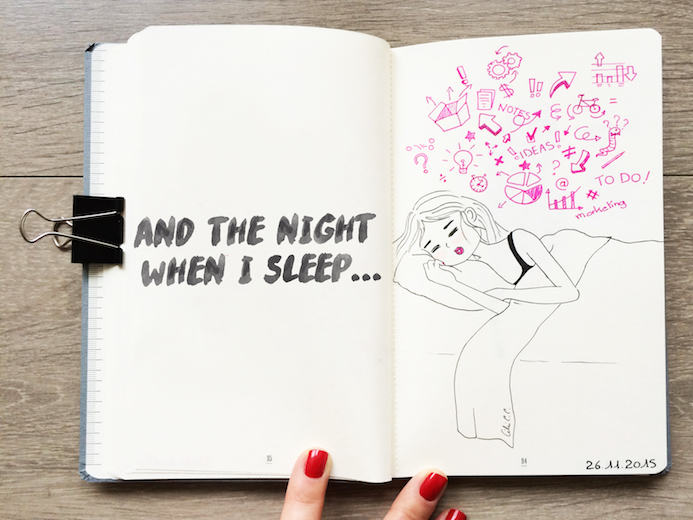 AND THE NIGHT
WHEN I SLEEP...
15
NOTES
IDEAS!
TO DO!
marketing
94
26.11.2015